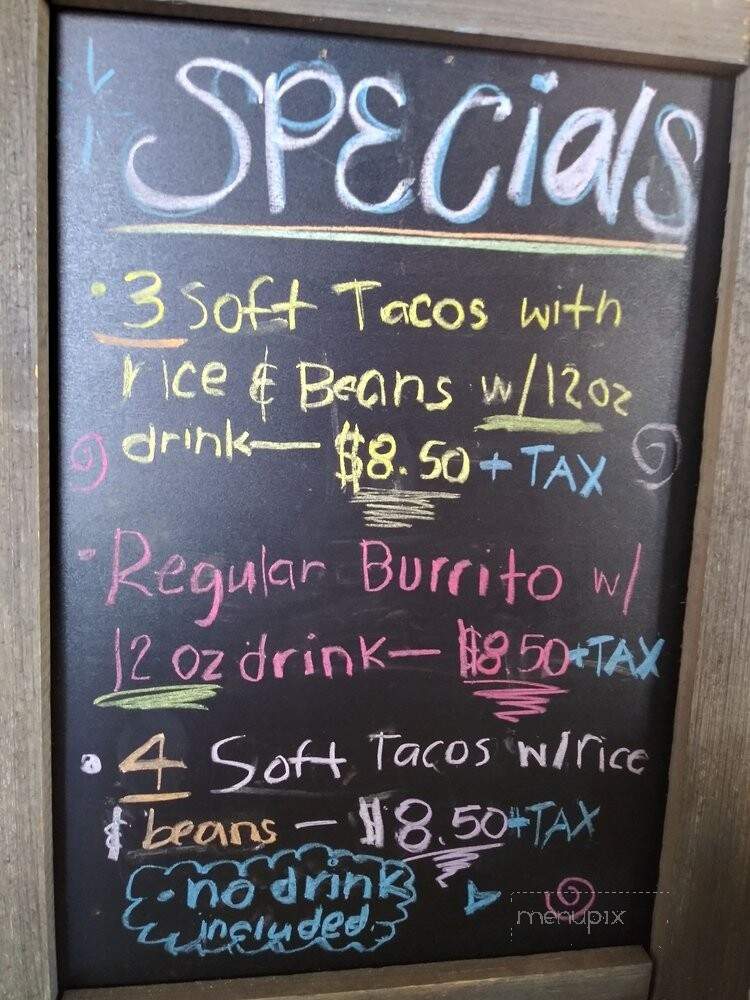 SPECials
• 3 Soft Tacos with
rice & Beans w/12oz
drink— $8.50 + TAX
• Regular Burrito w/
12 oz drink— $8.50 +TAX
• 4 Soft Tacos w/rice
& beans — $8.50 +TAX
• no drink
included.
menupix